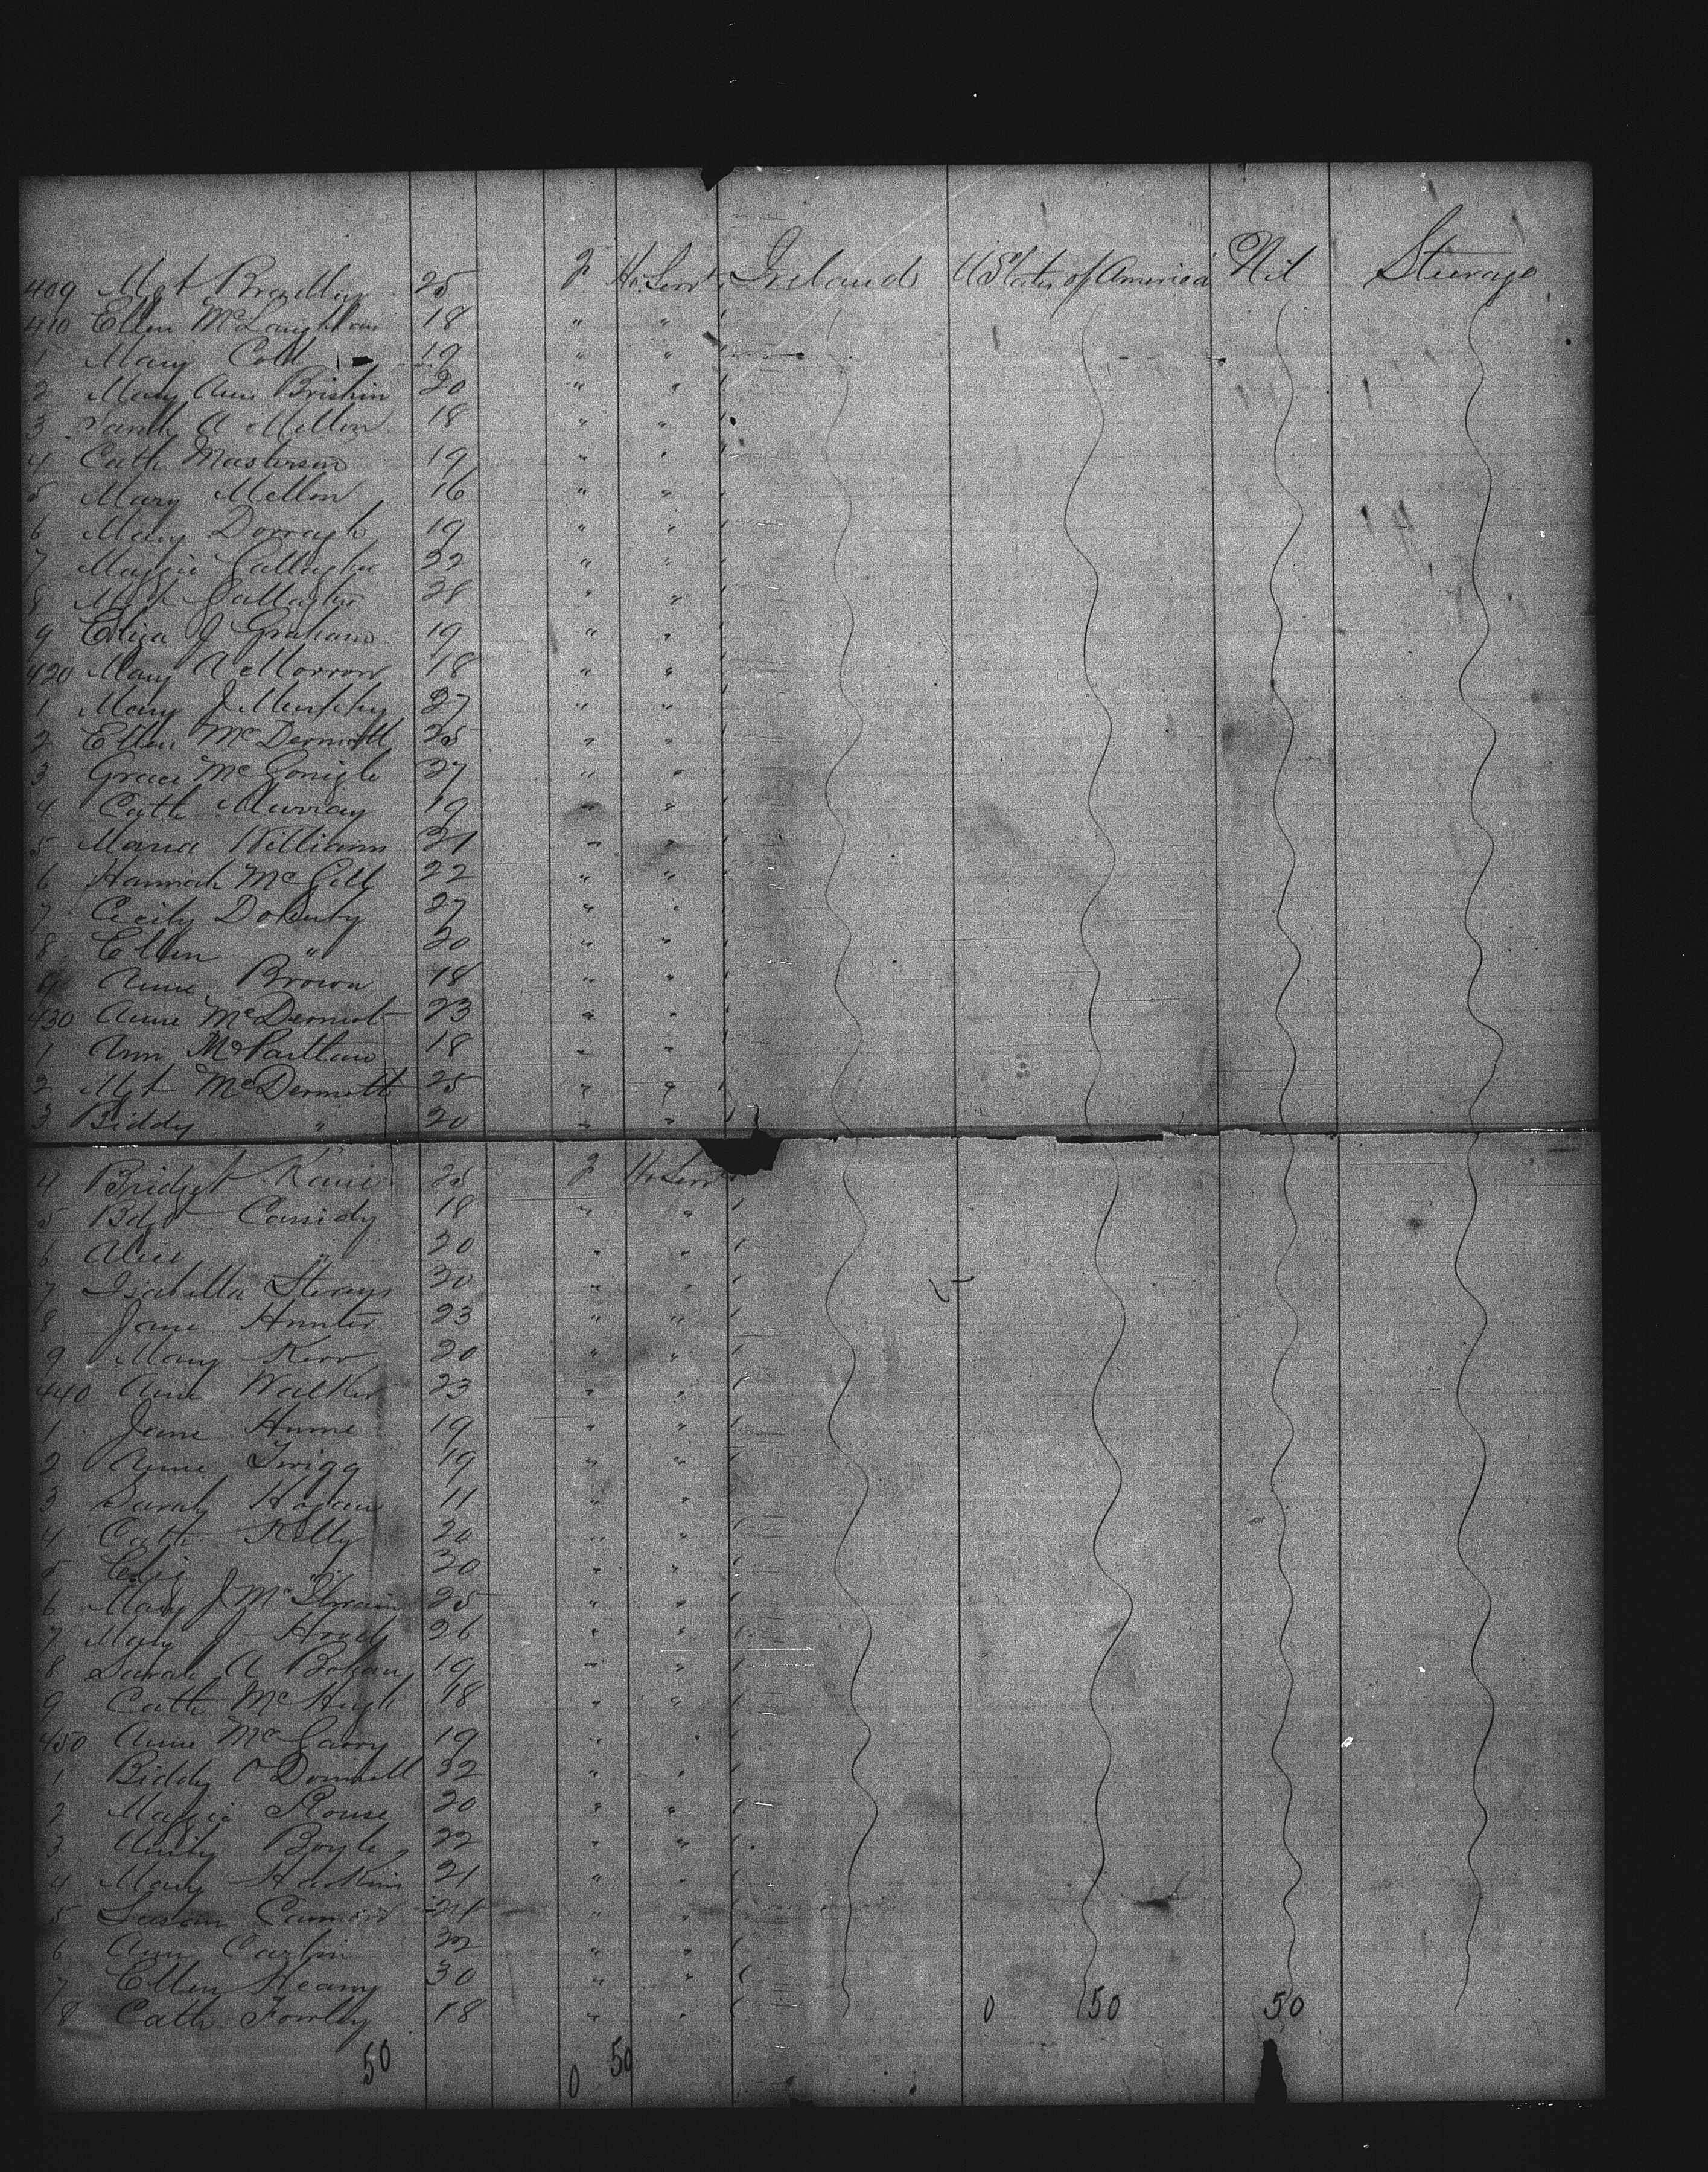 409 Mgt Bradley 25 F Ho. Servt Ireland U States of America Nil Steerage
410 Ellen McLaughlin 18 " "
1 Mary Coll 19 " "
2 Mary Ann Brishin 20 " "
3 Sarah A Mellon 18 " "
4 Cath Masterson 19 " "
5 Mary Mellon 16 " "
6 Mary Dorragh 19 " "
7 Maggie Gallagher 22 " "
8 Mgt Gallagher 38 " "
9 Eliza J Graham 19 " "
420 Mary A Morrow 18 " "
1 Mary J Murphy 27 " "
2 Ellen McDermott 25 " "
3 Grace McGonigle 27 " "
4 Cath Murray 19 " "
5 Maria Williams 21 " "
6 Hannah McGill 22 " "
7 Cicily Doherty 27 " "
8 Ellen " 20 " "
9 Anne Brown 18 " "
430 Anne McDermot 23 " "
1 Ann McPartlan 18 " "
2 Mgt McDermott 25 " "
3 Biddy " 20 " "
4 Bridget 25 F Ho Servt
5 Bdgt Cassidy 18 " "
6 Alice " 20 " "
7 Isabella 30 " "
8 Jane Hunter 23 " "
9 Mary Kerr 20 " "
440 Ann Walker 23 " "
1 Jane Hume 19 " "
2 Anne Twigg 19 " "
3 Sarah Hogan 11 " "
4 Cath Kelly 20 " "
5 Eliz " 30 " "
6 Mary J 25 " "
7 Mary J 26 " "
8 Sarah A Bohan 19 " "
9 Cath McHugh 18 " "
450 Anne McGarry 19 " "
1 Biddy O'Donnell 32 " "
2 Maggie Rouse 20 " "
3 Boyle 22 " "
4 Mary Harkin 21 " "
5 Susan 21 " "
6 Ann Carlin 22 " "
7 Ellen Heany 30 " "
8 Cath Fowley 18 " " 0 50 50
50 0 50